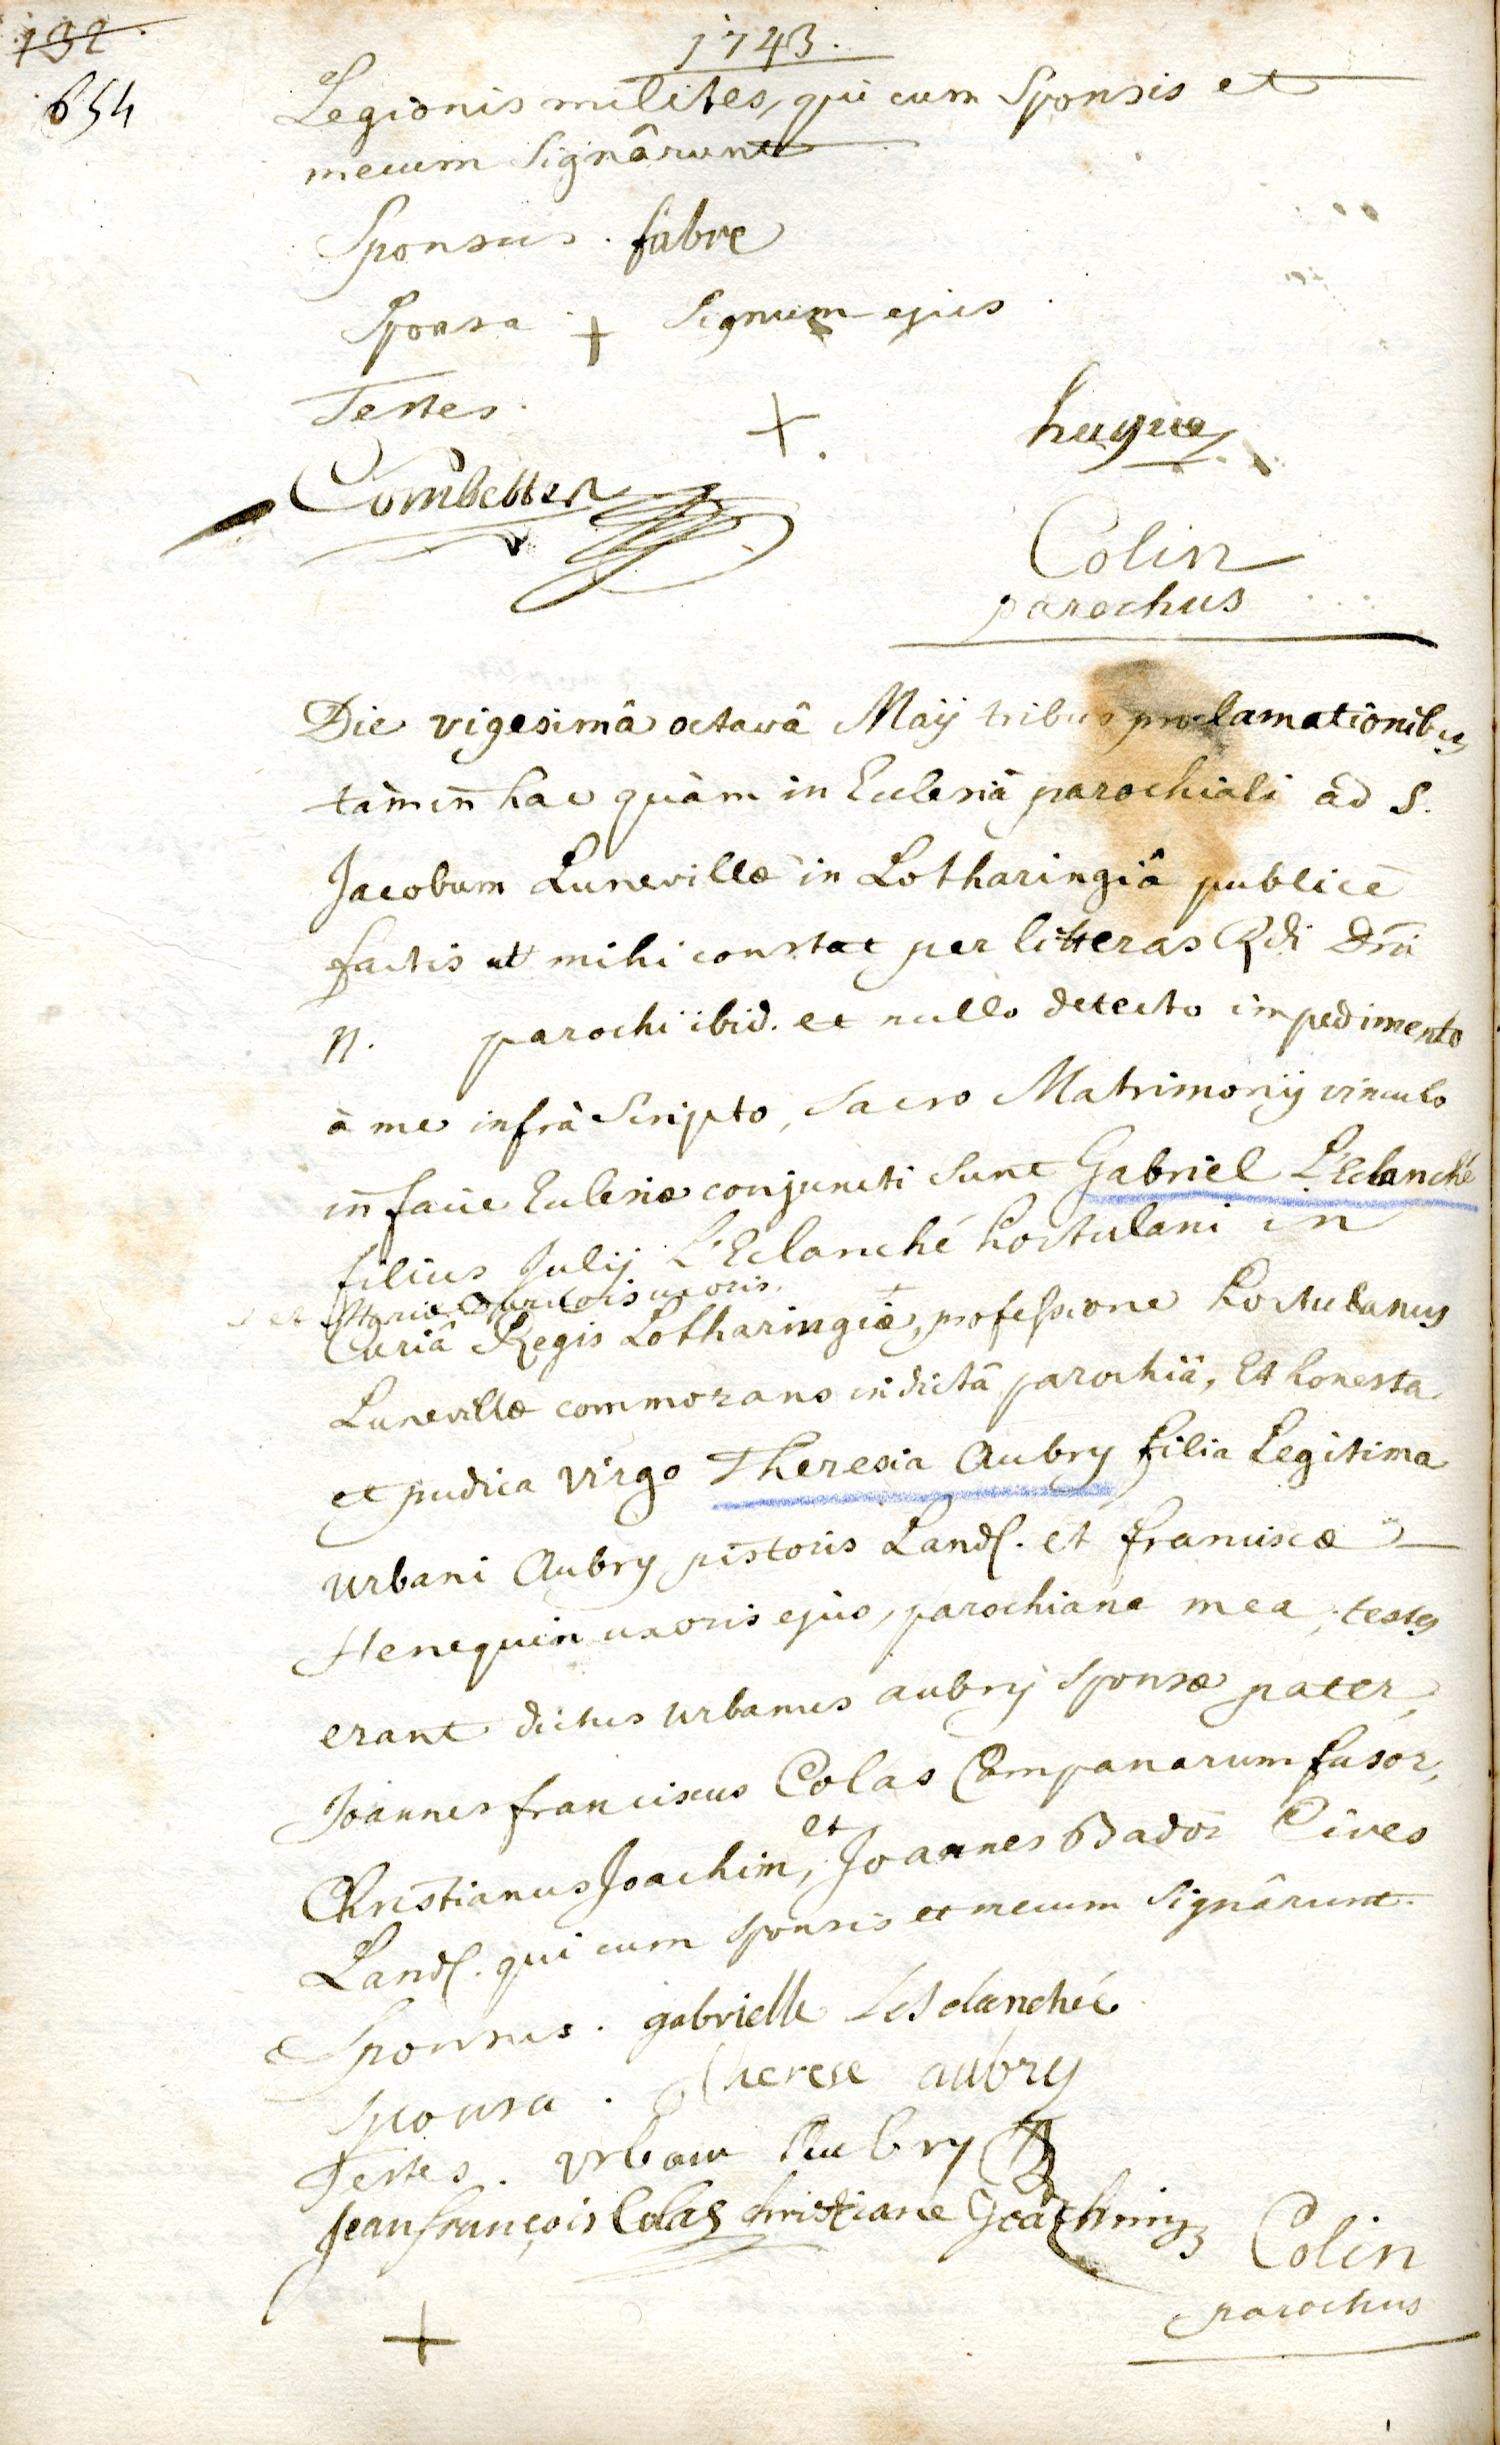 192.
654
1743.
Legionis milites, qui cum Sponsis et
mecum Signârunt
Sponsus. fabre
Sponsa + Signum ejus
Testes.
+
hugue
Combettes
Colin
parochus
Die vigesimâ octavâ Maÿ tribus proclamationibus
tàm in hac quàm in Ecclesiâ parochiali ad S.
Jacobum Lunevillæ in Lotharingiâ publicè
factis ut mihi constat per litteras Rdi Dni
N. parochi ibid. et nullo detecto impedimento
à me infrà Scripto, Sacro Matrimonÿ vinculo
in facie Ecclesiæ conjuncti sunt Gabriel L'Eclanché
filius Julÿ L'Eclanché hortulani in
et Mariæ uxoris.
Curiâ Regis Lotharingiæ, professione hortulanus
Lunevillæ commorans in dictâ parochiâ, Et honesta
et pudica virgo Theresia Aubry filia Legitima
urbani Aubry pistoris Land. et franciscæ
Henequin uxoris ejus, parochiana mea, testes
erant dictus urbanus aubry sponsæ pater,
Joannes franciscus Colas Campanarum fusor,
Christianus Joachim, et Joannes Bador Cives
Land. qui cum sponsis et mecum Signârunt.
Sponsus. gabrielle Lesclanchéé
Sponsa. Therese aubry
Testes. Urbain Aubry
Jean françois Colas christiane Joachim
Colin
parochus
+